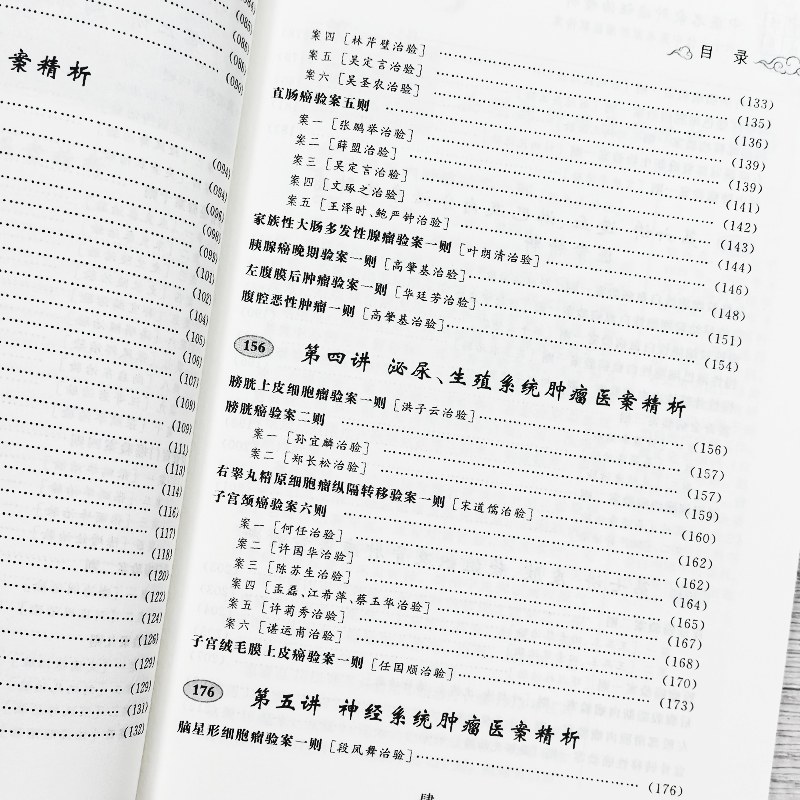 (085)
(086)
案精析
(094)
(094)
(096)
(096)
(098)
(101)
(102)
(104)
(105)
(106)
(107)
(109)
(109)
(111)
(113)
(114)
(116)
(117)
(118)
(120)
(122)
(124)
(126)
(129)
(129)
(131)
(132)
目 录
案四 [林芹壁治验] (133)
案五 [吴定言治验] (135)
案六 [吴圣农治验] (136)
直肠癌验案五则 (139)
案一 [张鹏举治验] (139)
案二 [薛盟治验] (141)
案三 [吴定言治验] (142)
案四 [文琢之治验] (143)
案五 [王泽时、鲍严钟治验] (144)
家族性大肠多发性腺瘤验案一则 [叶朗清治验] (146)
胰腺癌晚期验案一则 [高肇基治验] (148)
左腹膜后肿瘤验案一则 [华廷芳治验] (151)
腹腔恶性肿瘤一则 [高肇基治验] (154)
156 第四讲 泌尿、生殖系统肿瘤医案精析
膀胱上皮细胞瘤验案一则 [洪子云治验] (156)
膀胱癌验案二则 (157)
案一 [孙宜麟治验] (157)
案二 [郑长松治验] (159)
右睾丸精原细胞瘤纵隔转移验案一则 [宋道儒治验] (160)
子宫颈癌验案六则 (162)
案一 [何任治验] (162)
案二 [许国华治验] (164)
案三 [陈苏生治验] (165)
案四 [孟磊、江希萍、蔡玉华治验] (167)
案五 [许菊秀治验] (168)
案六 [谌运甫治验] (170)
子宫绒毛膜上皮癌验案一则 [任国顺治验] (173)
176 第五讲 神经系统肿瘤医案精析
脑星形细胞瘤验案一则 [段凤舞治验] (176)